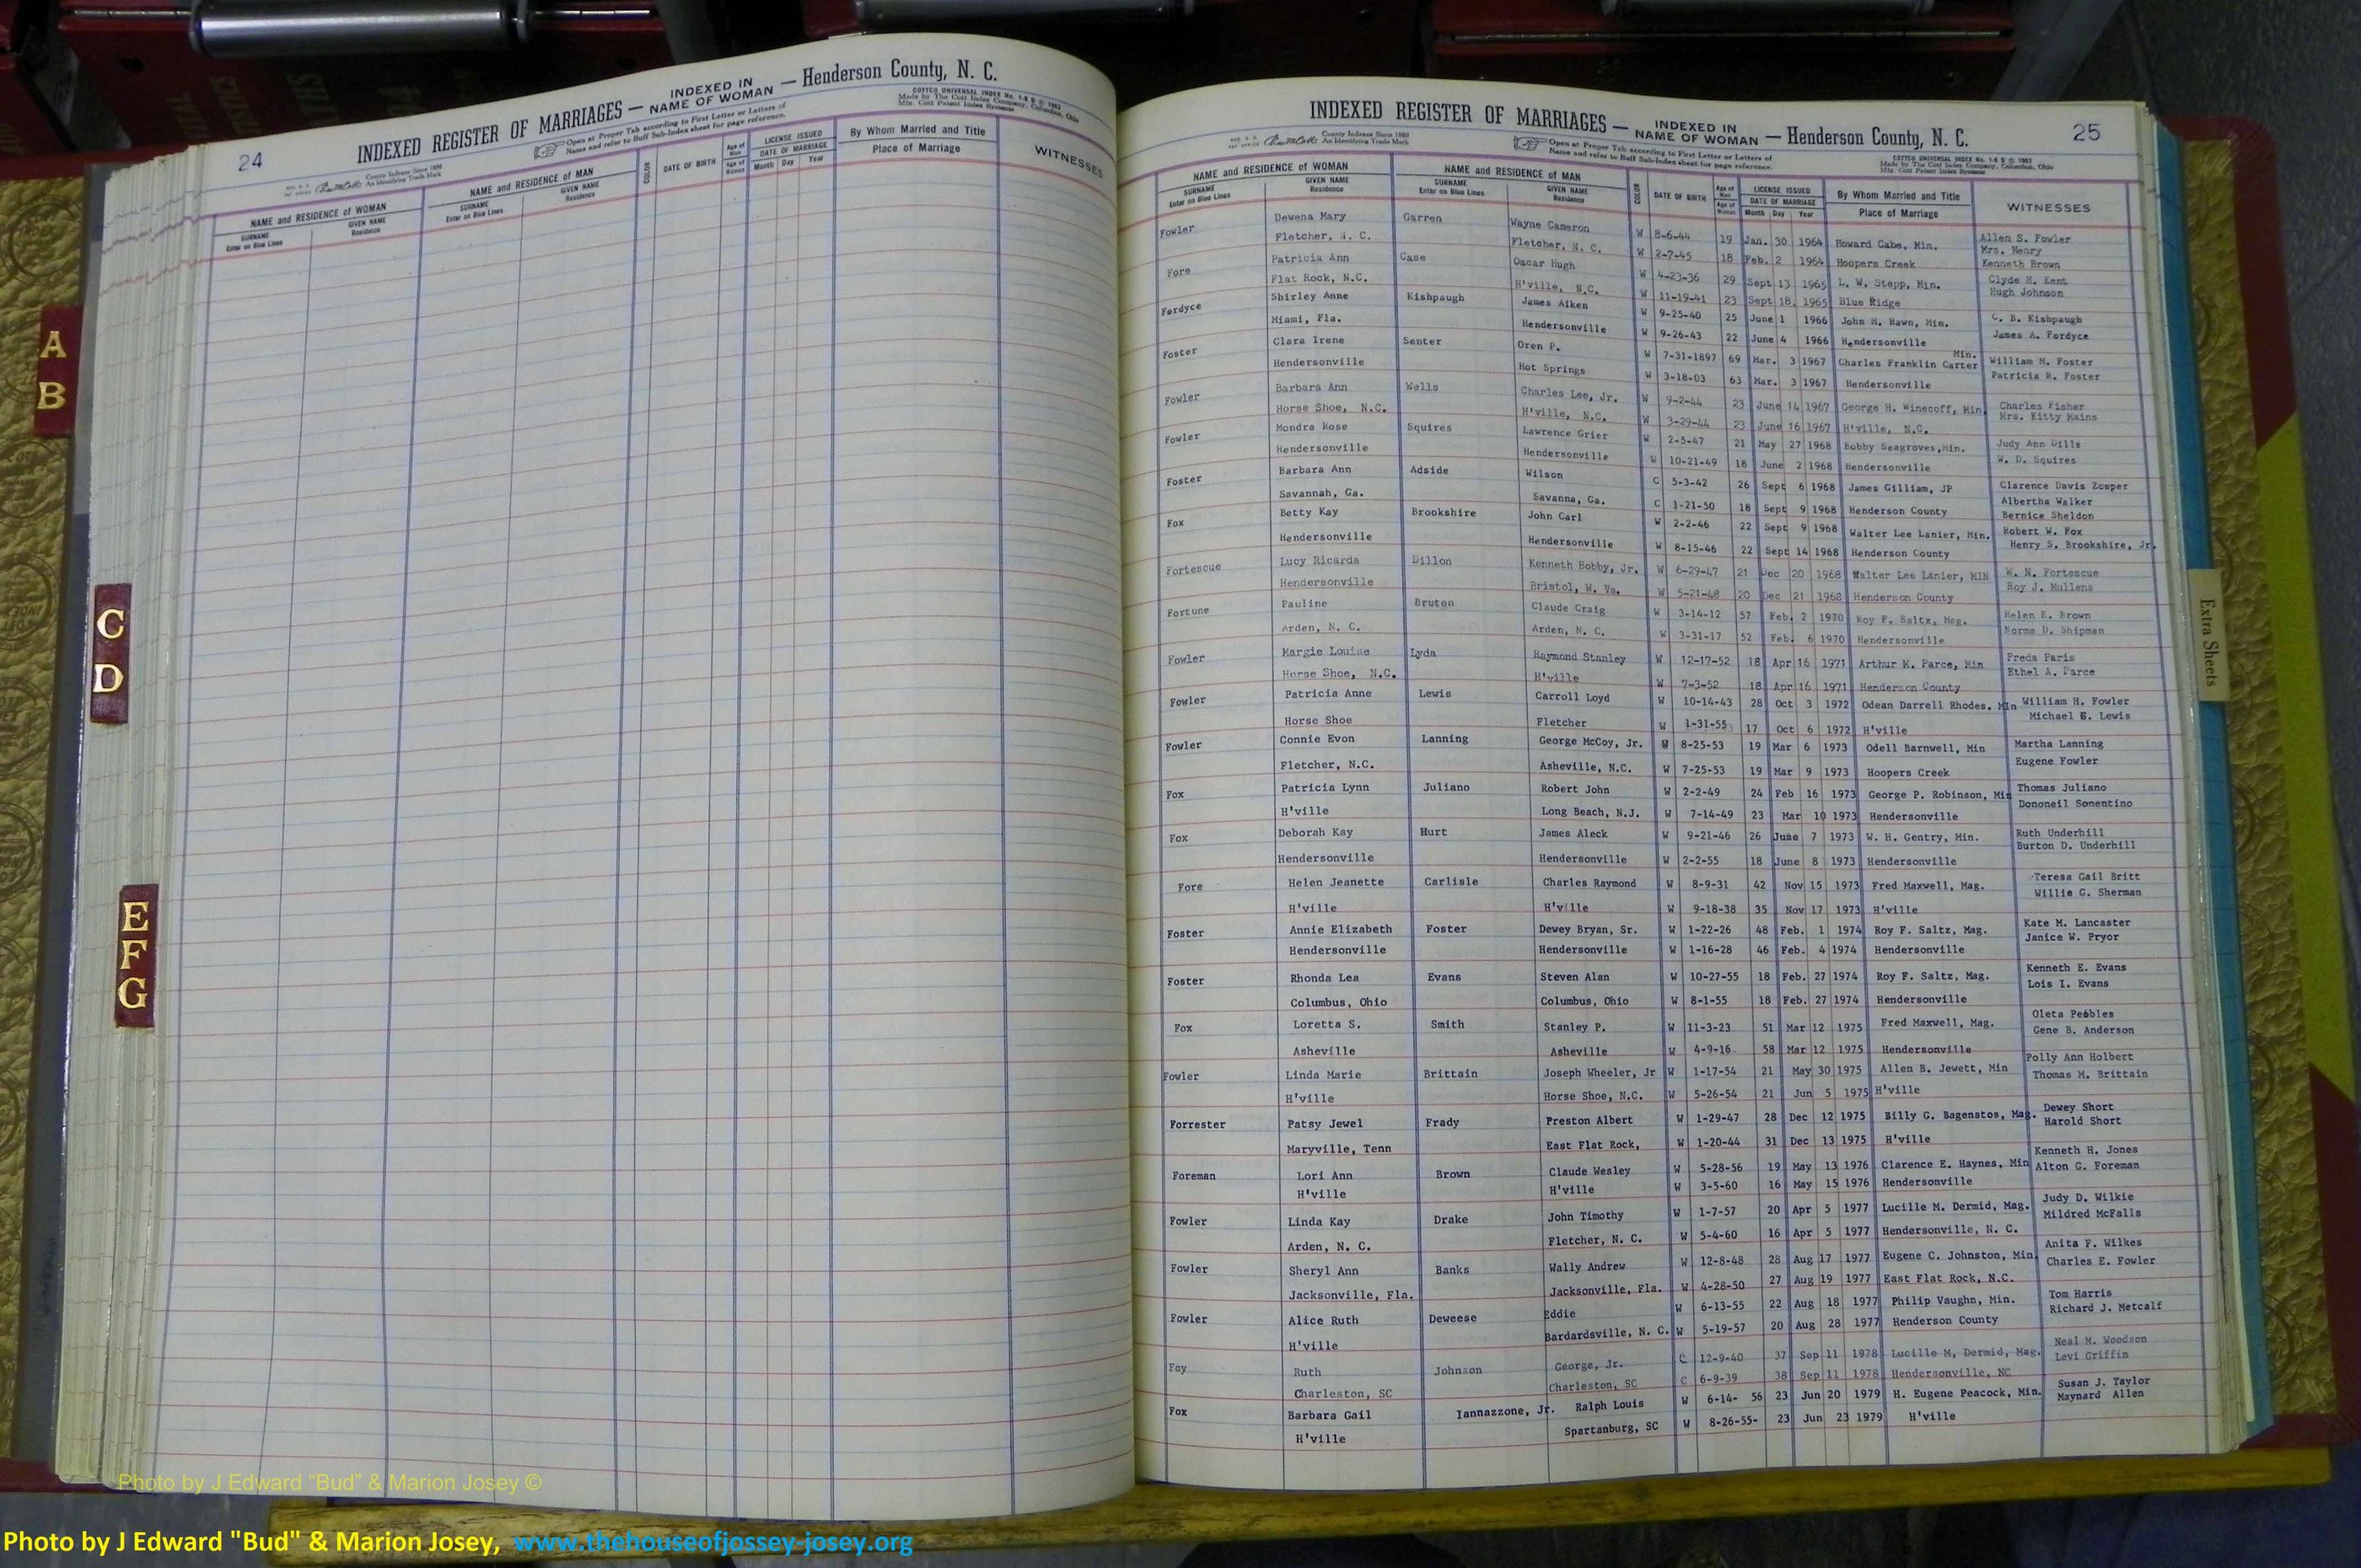 24
INDEXED REGISTER OF MARRIAGES — INDEXED IN NAME OF WOMAN — Henderson County, N. C.
County Indexes Since 1888
An Identifying Trade Mark
Open at Proper Tab according to First Letter or Letters of
Name and refer to Buff Sub-Index sheet for page reference.
COTTCO UNIVERSAL INDEX No. 1-8 D © 1962
Made by The Cott Index Company, Columbus, Ohio
Mfg. Cott Patent Index Systems
NAME and RESIDENCE of WOMAN
SURNAME Enter on Blue Lines
GIVEN NAME Residence
NAME and RESIDENCE of MAN
SURNAME Enter on Blue Lines
GIVEN NAME Residence
COLOR
DATE OF BIRTH
Age of Man
Age of Woman
LICENSE ISSUED
DATE OF MARRIAGE
Month Day Year
By Whom Married and Title
Place of Marriage
WITNESSES
A
B
C
D
E
F
G
INDEXED REGISTER OF MARRIAGES — INDEXED IN NAME OF WOMAN — Henderson County, N. C.
25
County Indexes Since 1888
An Identifying Trade Mark
Open at Proper Tab according to First Letter or Letters of
Name and refer to Buff Sub-Index sheet for page reference.
COTTCO UNIVERSAL INDEX No. 1-8 D © 1962
Made by The Cott Index Company, Columbus, Ohio
Mfg. Cott Patent Index Systems
NAME and RESIDENCE of WOMAN
SURNAME Enter on Blue Lines
GIVEN NAME Residence
NAME and RESIDENCE of MAN
SURNAME Enter on Blue Lines
GIVEN NAME Residence
COLOR
DATE OF BIRTH
Age of Man
Age of Woman
LICENSE ISSUED
DATE OF MARRIAGE
Month Day Year
By Whom Married and Title
Place of Marriage
WITNESSES
Fowler Dewena Mary Garren Wayne Cameron W 8-6-44 19 Jan. 30 1964 Howard Cabe, Min. Allen S. Fowler
Mrs. Henry
Fletcher, N. C. Fletcher, N. C. W 2-7-45 18 Feb. 2 1964 Hoopers Creek Kenneth Brown
Fore Patricia Ann Case Oscar Hugh W 4-23-36 29 Sept 13 1965 L. W. Stepp, Min. Clyde H. Kent
Flat Rock, N.C. H'ville, N.C. W 11-19-41 23 Sept 18, 1965 Blue Ridge Hugh Johnson
Fordyce Shirley Anne Kishpaugh James Aiken W 9-25-40 25 June 1 1966 John M. Hawn, Min. C. B. Kishpaugh
Miami, Fla. Hendersonville W 9-26-43 22 June 4 1966 Hendersonville James A. Fordyce
Foster Clara Irene Senter Oren P. W 7-31-1897 69 Mar. 3 1967 Charles Franklin Carter Min. William M. Foster
Hendersonville Hot Springs W 3-18-03 63 Mar. 3 1967 Hendersonville Patricia R. Foster
Fowler Barbara Ann Wells Charles Lee, Jr. W 9-2-44 23 June 14 1967 George H. Winecoff, Min Charles Fisher
Horse Shoe, N.C. H'ville, N.C. W 3-29-44 23 June 16 1967 H'ville, N.C. Mrs. Kitty Mains
Fowler Mondra Rose Squires Lawrence Grier W 2-5-47 21 May 27 1968 Bobby Seagroves,Min. Judy Ann Dills
Hendersonville Hendersonville W 10-21-49 18 June 2 1968 Hendersonville W. D. Squires
Foster Barbara Ann Adside Wilson C 5-3-42 26 Sept 6 1968 James Gilliam, JP Clarence Davis Zowper
Albertha Walker
Savannah, Ga. Savanna, Ga. C 1-21-50 18 Sept 9 1968 Henderson County Bernice Sheldon
Fox Betty Kay Brookshire John Carl W 2-2-46 22 Sept 9 1968 Walter Lee Lanier, Min. Robert W. Fox
Hendersonville Hendersonville W 8-15-46 22 Sept 14 1968 Henderson County Henry S. Brookshire, Jr.
Fortescue Lucy Ricarda Dillon Kenneth Bobby, Jr. W 6-29-47 21 Dec 20 1968 Walter Lee Lanier, MIN W. N. Fortescue
Hendersonville Bristol, W. Va. W 5-21-48 20 Dec 21 1968 Henderson County Roy J. Mullens
Fortune Pauline Bruton Claude Craig W 3-14-12 57 Feb. 2 1970 Roy F. Saltz, Mag. Helen E. Brown
Arden, N. C. Arden, N. C. W 3-31-17 52 Feb. 6 1970 Hendersonville Norma D. Shipman
Fowler Margie Louise Lyda Raymond Stanley W 12-17-52 18 Apr 16 1971 Arthur K. Parce, Min Freda Paris
Horse Shoe, N.C. H'ville W 7-3-52 18 Apr 16 1971 Henderson County Ethel A. Parce
Fowler Patricia Anne Lewis Carroll Loyd W 10-14-43 28 Oct 3 1972 Odean Darrell Rhodes. Min William H. Fowler
Horse Shoe Fletcher W 1-31-55 17 Oct 6 1972 H'ville Michael G. Lewis
Fowler Connie Evon Lanning George McCoy, Jr. W 8-25-53 19 Mar 6 1973 Odell Barnwell, Min Martha Lanning
Fletcher, N.C. Asheville, N.C. W 7-25-53 19 Mar 9 1973 Hoopers Creek Eugene Fowler
Fox Patricia Lynn Juliano Robert John W 2-2-49 24 Feb 16 1973 George P. Robinson, Min Thomas Juliano
H'ville Long Beach, N.J. W 7-14-49 23 Mar 10 1973 Hendersonville Dononeil Sonentino
Fox Deborah Kay Hurt James Aleck W 9-21-46 26 June 7 1973 W. H. Gentry, Min. Ruth Underhill
Hendersonville Hendersonville W 2-2-55 18 June 8 1973 Hendersonville Burton D. Underhill
Fore Helen Jeanette Carlisle Charles Raymond W 8-9-31 42 Nov 15 1973 Fred Maxwell, Mag. Teresa Gail Britt
H'ville H'ville W 9-18-38 35 Nov 17 1973 H'ville Willie G. Sherman
Foster Annie Elizabeth Foster Dewey Bryan, Sr. W 1-22-26 48 Feb. 1 1974 Roy F. Saltz, Mag. Kate M. Lancaster
Hendersonville Hendersonville W 1-16-28 46 Feb. 4 1974 Hendersonville Janice W. Pryor
Foster Rhonda Lea Evans Steven Alan W 10-27-55 18 Feb. 27 1974 Roy F. Saltz, Mag. Kenneth E. Evans
Columbus, Ohio Columbus, Ohio W 8-1-55 18 Feb. 27 1974 Hendersonville Lois I. Evans
Fox Loretta S. Smith Stanley P. W 11-3-23 51 Mar 12 1975 Fred Maxwell, Mag. Oleta Peebles
Asheville Asheville W 4-9-16 58 Mar 12 1975 Hendersonville Gene B. Anderson
Fowler Linda Marie Brittain Joseph Wheeler, Jr W 1-17-54 21 May 30 1975 Allen B. Jewett, Min Polly Ann Holbert
H'ville Horse Shoe, N.C. W 5-26-54 21 Jun 5 1975 H'ville Thomas M. Brittain
Forrester Patsy Jewel Frady Preston Albert W 1-29-47 28 Dec 12 1975 Billy G. Bagenstos, Mag. Dewey Short
Maryville, Tenn East Flat Rock, W 1-20-44 31 Dec 13 1975 H'ville Harold Short
Foreman Lori Ann Brown Claude Wesley W 5-28-56 19 May 13 1976 Clarence E. Haynes, Min Kenneth H. Jones
H'ville H'ville W 3-5-60 16 May 15 1976 Hendersonville Alton G. Foreman
Fowler Linda Kay Drake John Timothy W 1-7-57 20 Apr 5 1977 Lucille M. Dermid, Mag. Judy D. Wilkie
Arden, N. C. Fletcher, N. C. W 5-4-60 16 Apr 5 1977 Hendersonville, N. C. Mildred McFalls
Fowler Sheryl Ann Banks Wally Andrew W 12-8-48 28 Aug 17 1977 Eugene C. Johnston, Min. Anita F. Wilkes
Jacksonville, Fla. Jacksonville, Fla. W 4-28-50 27 Aug 19 1977 East Flat Rock, N.C. Charles E. Fowler
Fowler Alice Ruth Deweese Eddie W 6-13-55 22 Aug 18 1977 Philip Vaughn, Min. Tom Harris
H'ville Bardardsville, N. C. W 5-19-57 20 Aug 28 1977 Henderson County Richard J. Metcalf
Foy Ruth Johnson George, Jr. C 12-9-40 37 Sep 11 1978 Lucille M, Dermid, Mag. Neal M. Woodson
Charleston, SC Charleston, SC C 6-9-39 38 Sep 11 1978 Hendersonville, NC Levi Griffin
Fox Barbara Gail Iannazzone, Jr. Ralph Louis W 6-14- 56 23 Jun 20 1979 H. Eugene Peacock, Min. Susan J. Taylor
H'ville Spartanburg, SC W 8-26-55- 23 Jun 23 1979 H'ville Maynard Allen
Extra Sheets
Photo by J Edward “Bud” & Marion Josey ©
Photo by J Edward "Bud" & Marion Josey, www.thehouseofjossey-josey.org